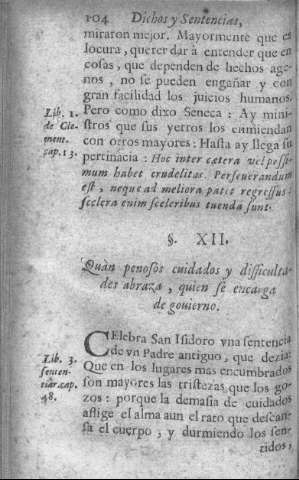 104 Dichos y Sentencias,
miraron mejor. Mayormente que es
locura, querer dar à entender que en
cosas, que dependen de hechos age-
nos, no se pueden engañar y con
gran facilidad los juicios humanos.
Pero como dixo Seneca: Ay mini-
stros que sus yerros los enmiendan
con otros mayores: Hasta ay llega su
pertinácia: Hoc inter cætera vel pessi-
mum habet crudelitas. Perseuerandum
est, neque ad meliora patet regressus:
scelera enim sceleribus tuenda sunt.
Lib. 1.
de Cle-
ment.
cap. 13.
§. XII.
Quàn penosos cuidados y dificulta-
des abraza, quien se encarga
de gouierno.
CElebra San Isidoro vna sentencia
de vn Padre antiguo, que dezia:
Que en los lugares mas encumbrados
son mayores las tristezas que los go-
zos: porque la demasia de cuidados
aflige el alma aun el rato que descan-
sa el cuerpo, y durmiendo los sen-
tidos,
Lib. 3.
senten-
tiar. cap.
48.